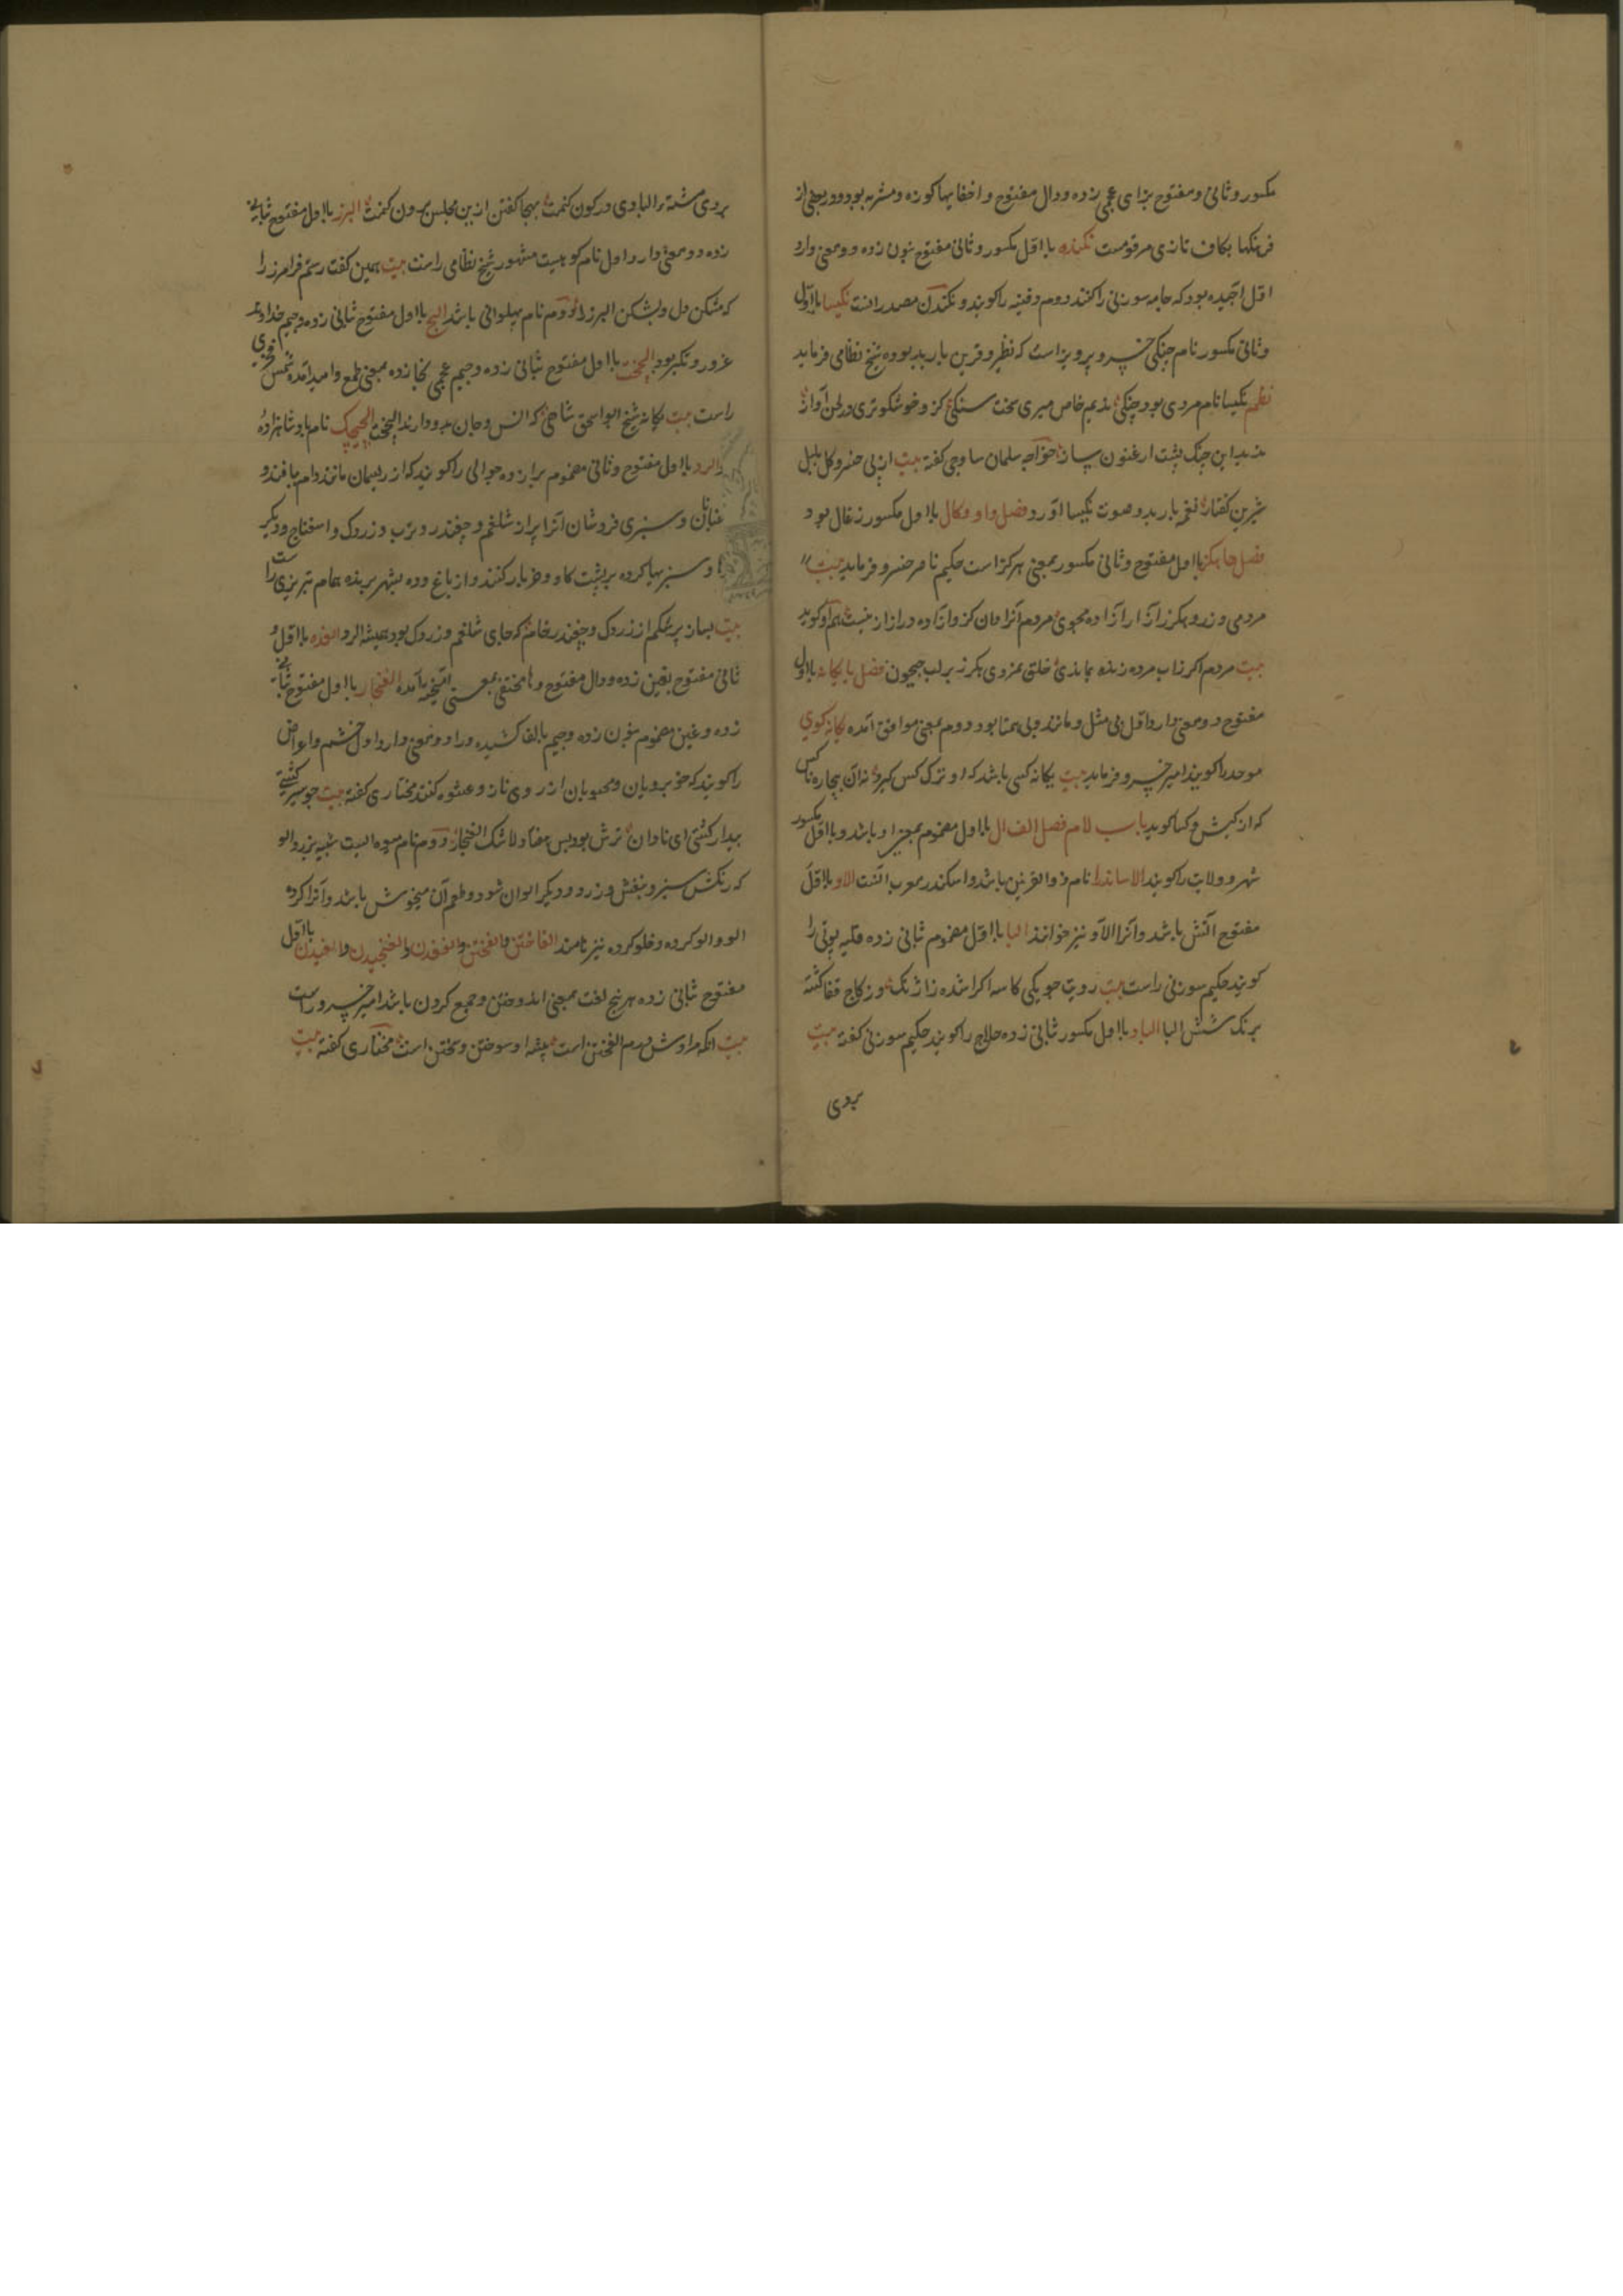 مکسور و ثانی و مفتوح بزای عجمی زده و دال مفتوح و اخفا یها کوزه و مشربه بود و در بعضی از
فرهنکها بکاف تازی مرقومست نکنده با اول مکسور و ثانی مفتوح بنون زده دو معنی دارد
اول آجیده بود که جامه سوزنی را کنند دوم دفینه را کویند و نکندن مصدر انست نکیسا با اول
و ثانی مکسور نام چنکی خسرو پرویز است که نظیر و قرین باربد بوده شیخ نظامی فرماید
نظم نکیسا نام مردی بود چنکی ندیم خاص میری سخت سنکی کز و خوشکوتری در لحن آواز
ندید این چنک پشت ارغنون ساز خواجه سلمان ساوجی کفته بیت از پی خسرو کل بلبل
شیرین کفتار نغمه باربد و صوت نکیسا آورد فصل واو وکال با اول مکسور زغال بود
فصل ها هکرز با اول مفتوح و ثانی مکسور بمعنی هرکز است حکیم ناصر خسرو فرماید بیت
مردمی ورز و هکرز آزار آزاده مجوی مردم آنرا دان کز و آزاده را آزار نیست هم او کوید
بیت مردم اکر زاب مرده زنده بماندی خلق نمردی هکرز بر لب جیحون فصل یا یکانه با اول
مفتوح دو معنی دارد اول بی مثل و مانند و بی همتا بود دوم بمعنی موافق آمده یکانه کوی
موحد را کویند امیر خسرو فرماید بیت یکانه کسی باشد که او ترک کس کیرد نه ان بیچاره ناکس
که از کیش و کسا کوید باب لام فصل الف ال با اول مضموم بمعنی او باشد و با اول مکسور
شهر و ولایت را کویند الاساندا نام ذوالقرنین باشد و اسکندر معرب آنست الاو با اول
مفتوح آتش باشد و آنرا الآو نیز خوانند البا با اول مضموم ثانی زده قلیه پوتی را
کویند حکیم سوزنی راست بیت رویت چو یکی کاسه اکرا شده ز آژنک وز کاج قفا کشته
برنک شش البا الباد با اول مکسور ثانی زده حلاج را کویند حکیم سوزنی کفته بیت
بردی
بردی مشته البادی در کون کنمت بهجا کفتن ازین مجلس بیرون کنمت البرز با اول مفتوح ثانی
زده دو معنی دارد اول نام کوهیست مشهور شیخ نظامی راست بیت همین کفت رستم فرامرز را
که مشکن دل و بشکن البرز را دوم نام پهلوانی باشد الیج با اول مفتوح ثانی زده و جیم خداوند
غرور و تکبر بود الچخت با اول مفتوح ثانی زده و جیم عجمی بخا زده بمعنی طمع و امید آمده شمس فخری
راست بیت یکانه شیخ ابو اسحق شاهی که انس و جان بدو دارند الچخت الچیچک نام پادشاهزاده
الرد با اول مفتوح و ثانی مضموم برا زده جوالی را کویند که از ریسمان مانند دام بافند و
و سبزی فروشان آنرا پر از شلغم و چغندر و ترب و زردک و اسفناج و دیکر
و سبزیها کرده بر پشت کاو و خر بار کنند و از باغ و ده بشهر برند همام تبریزی راست
بیت بساز پر شکم از زردک و چغندر خام که جای شلغم و زردک بود همیشه الرد الغده با اول و
ثانی مفتوح بغین زده و دال مفتوح و ها مختفی بمعنی آمده الغنجار با اول مفتوح ثانی
زده و غین مضموم بنون زده و جیم بالف کشیده و را دو معنی دارد اول خشم و اعراض
را کویند که خوبرویان و محبوبان از روی ناز و عشوه کنند مختاری کفته بیت
بیدار کشتی ای نادان ترش بود پس هفتاد ولا شک الغنجار دوم نام میوه ایست شبیه بزردالو
که رنکش سبز و بنفش و زرد و دیکر الوان شود و طعم آن میخوش باشد و آنرا کرده
الو و الو کرده و غلو کرده نیز نامند الفاختن و الفختن و الفغدن و الفنجیدن و الفیدن با اول
مفتوح ثانی زده هر پنج لغت بمعنی اندوختن و جمع کردن باشد امیر خسرو راست
بیت انکه مرادش درم الفختن است پیشه او سوختن و پختن است مختاری کفته بیت